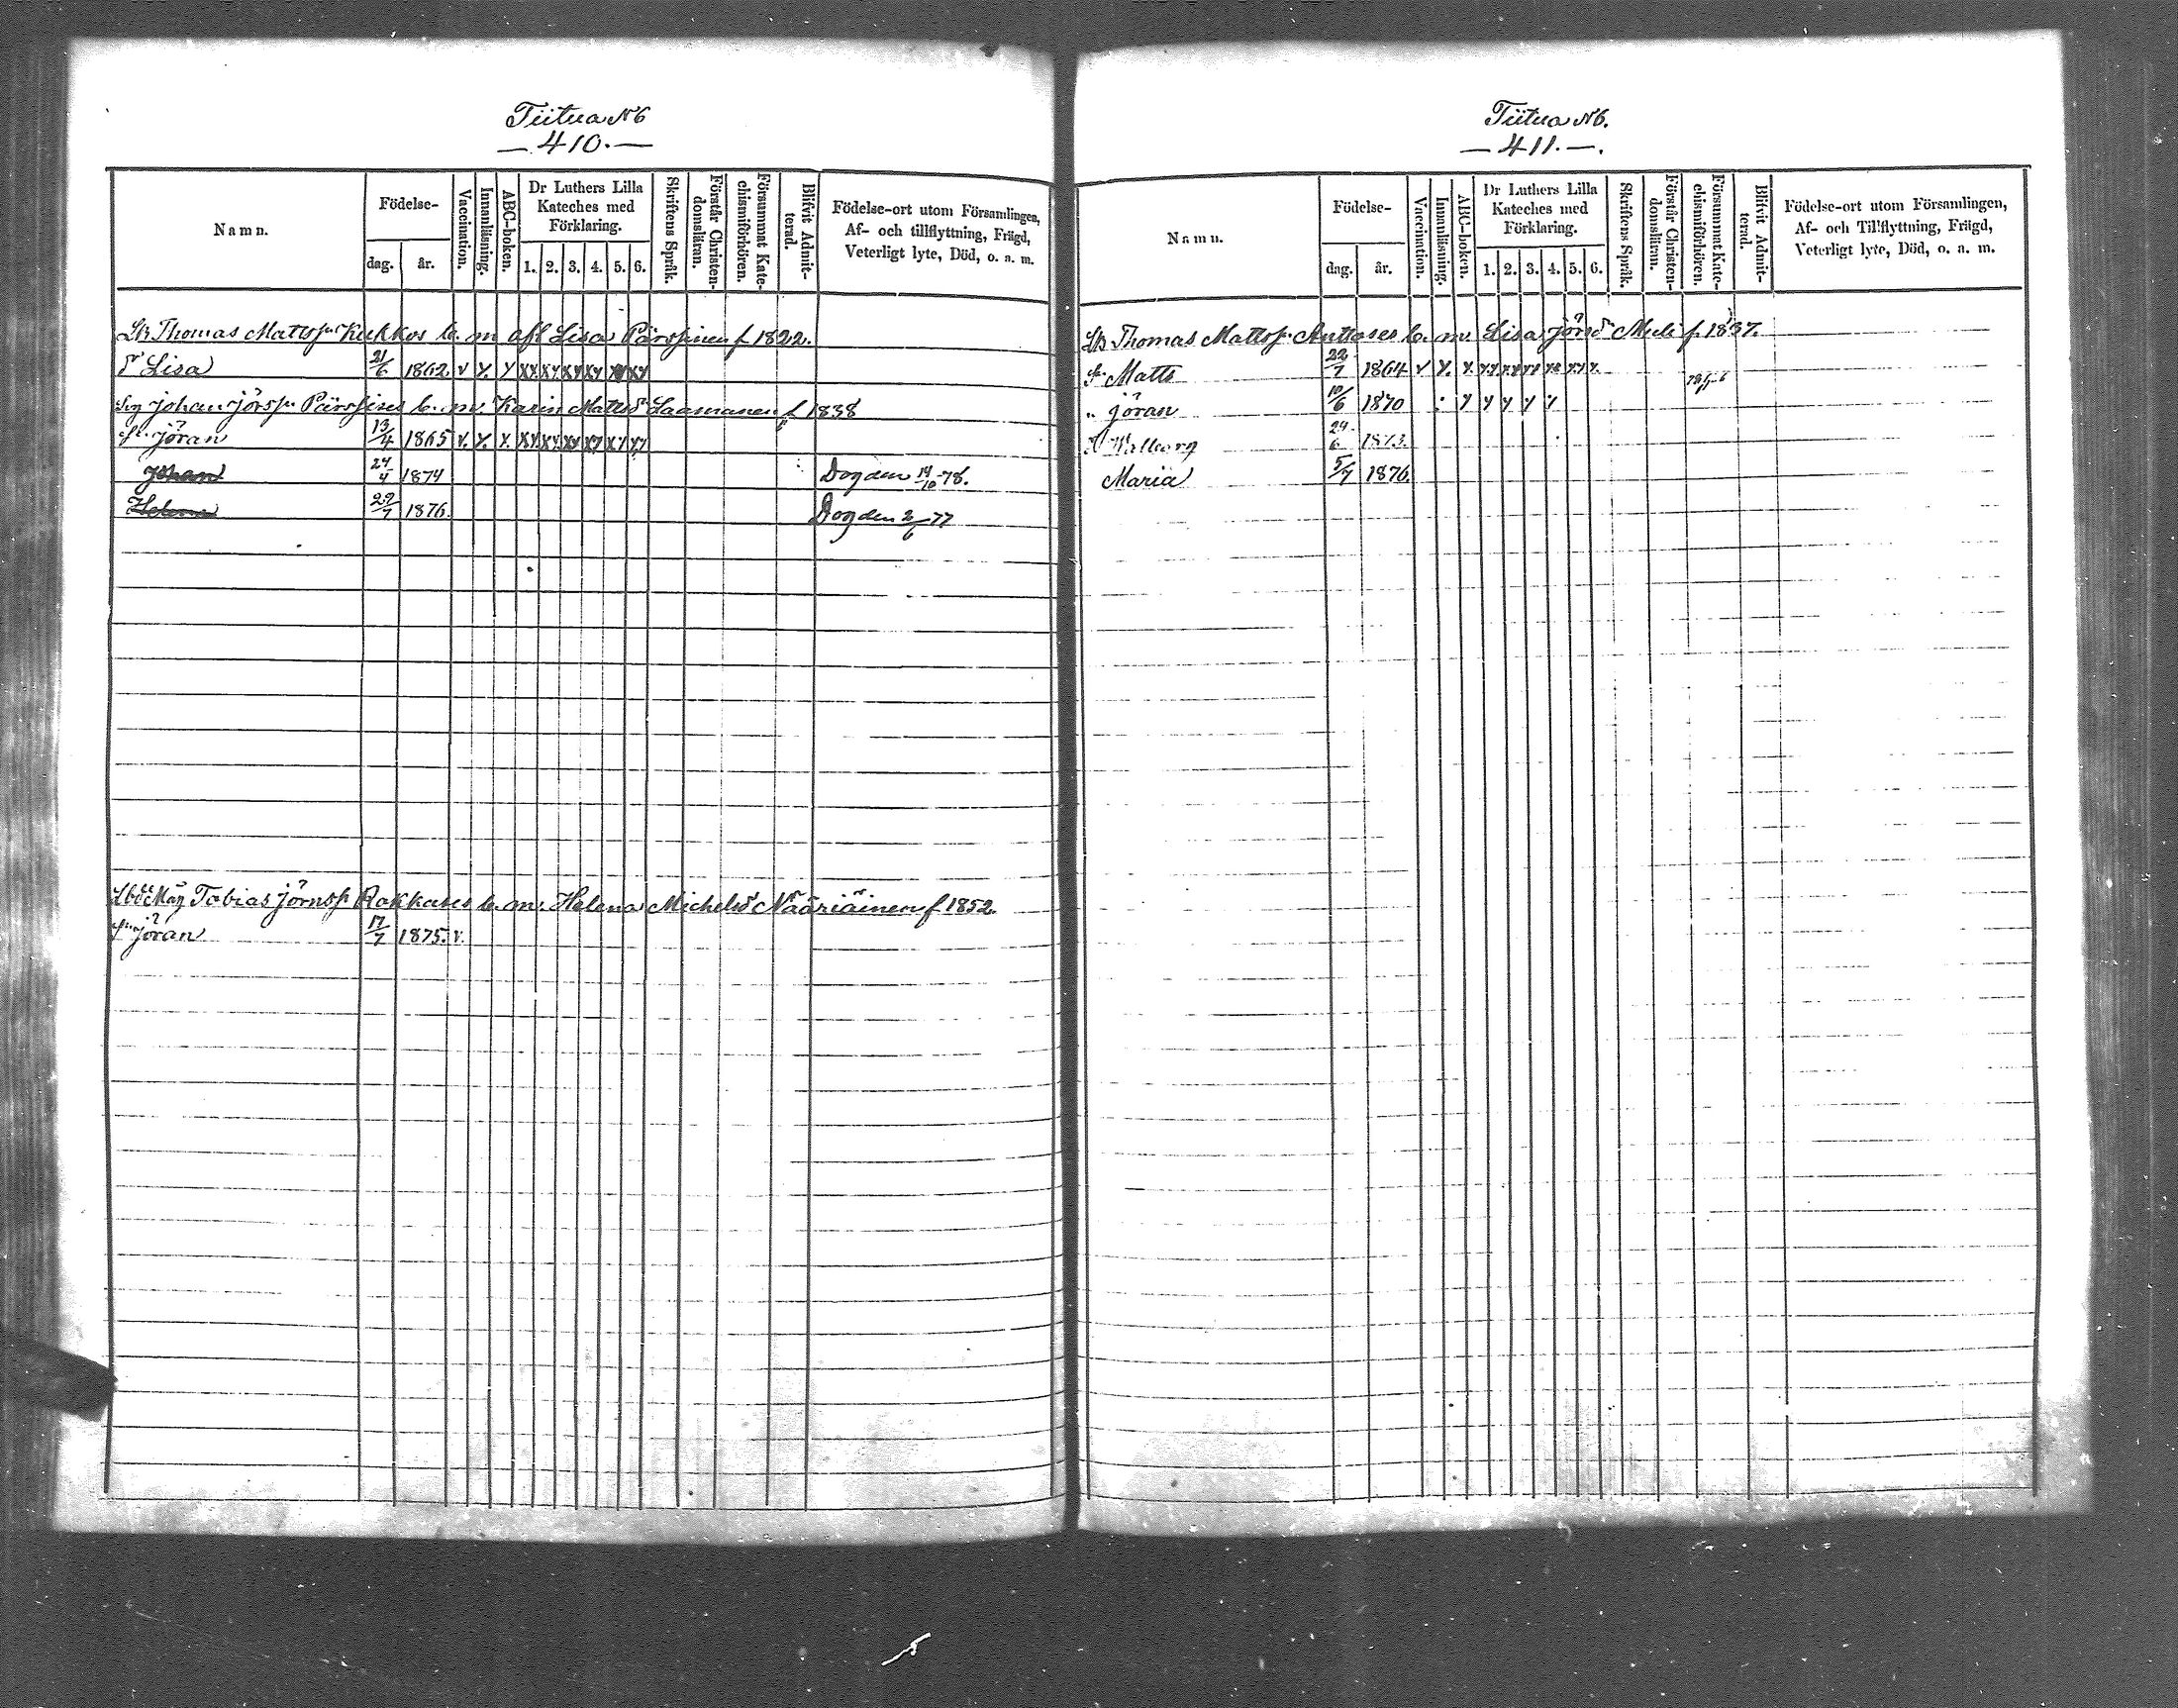 Tiitua N6
— 410. —
Namn.
Födelse-
dag.
år.
Vaccination.
Innanläsning.
ABC-boken.
Dr Luthers Lilla
Kateches med
Förklaring.
1. 2. 3. 4. 5. 6.
Skriftens Språk.
Förstår Christen-
domsläran.
Försummat Kate-
chismiförhören.
Blifvit Admit-
terad.
Födelse-ort utom Församlingen,
Af- och tillflyttning, Frägd,
Veterligt lyte, Död, o. s. m.
Thomas Mattss: Kukkos b. m. afl Lisa Pärssinen f 1822.
dr Lisa 21/6 1862. v
Johan Jörss: Pärssines b. m. Karin Mattsdr Laamanen f 1838
sn. Jöran 13/4 1865 v.
Johan 24/4 1874 Dog den 14/10 -78.
Helena 22/7 1876. Dog den 2/6 -77
Tobias Jörnss: Rakkases b. m. Helena Michelsdr Nääriäinen f 1852.
sn Jöran 17/7 1875. v.
Tiitua N6.
— 411. —.
Namn.
Födelse-
dag.
år.
Vaccination.
Innanläsning.
ABC-boken.
Dr Luthers Lilla
Kateches med
Förklaring.
1. 2. 3. 4. 5. 6.
Skriftens Språk.
Förstår Christen-
domsläran.
Försummat Kate-
chismiförhören.
Blifvit Admit-
terad.
Födelse-ort utom Församlingen,
Af- och Tillflyttning, Frägd,
Veterligt lyte, Död, o. s. m.
Thomas Mattss: Anttoses b. m. Lisa Jörsdr Muli f. 1837.
sn Matts 22/7 1864 v
„ Jöran 10/6 1870
Walborg 29/6 1873.
Maria 5/7 1876.